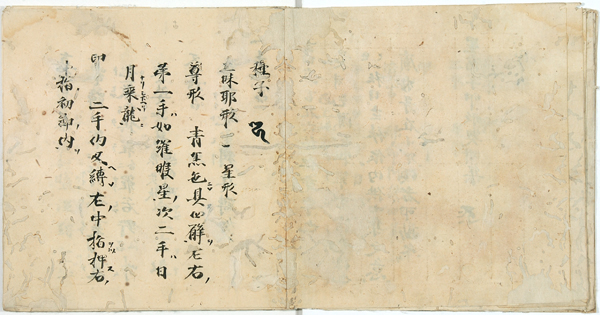 種子
三昧耶形 一 星形
尊形 青黒色具四臂左右
第一手如羅睺星次二手日
月乘龍
印 二手内叉縛左中指押右
指初節内